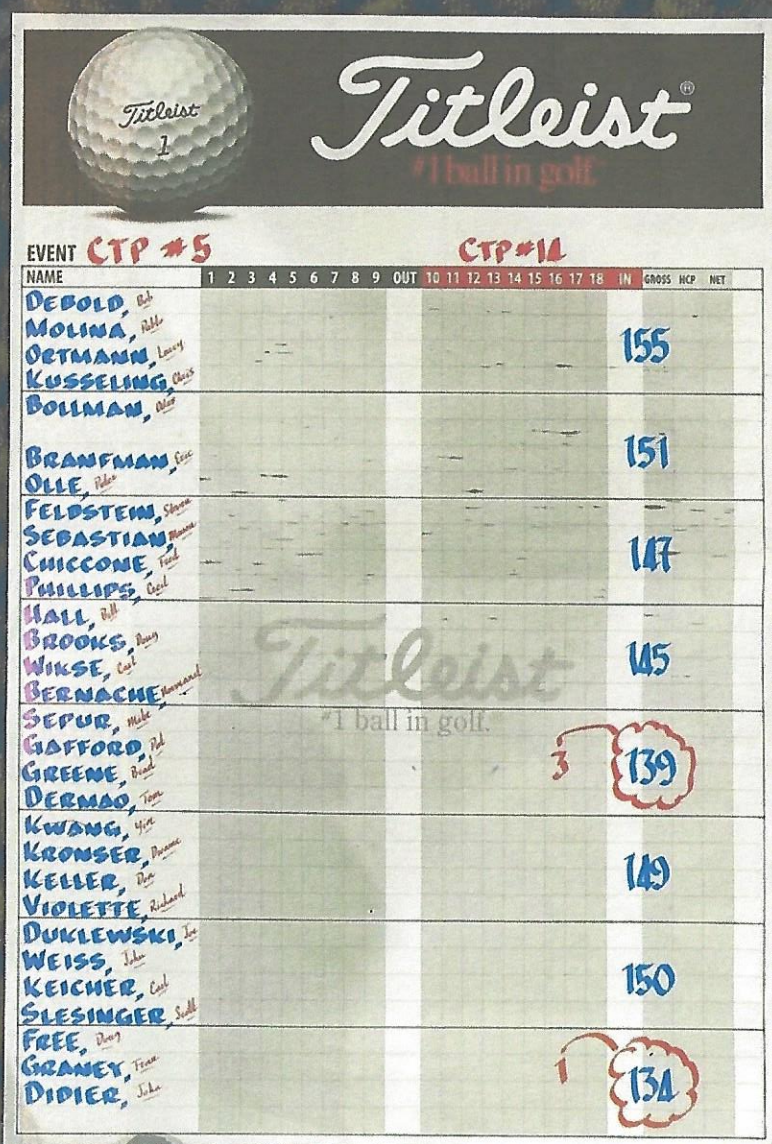 Titleist
1
Titleist®
#1 ball in golf.™
EVENT CTP #5 CTP #14
NAME 1 2 3 4 5 6 7 8 9 OUT 10 11 12 13 14 15 16 17 18 IN GROSS HCP NET
DEBOLD, Bob
MOLINA, Pablo
ORTMANN, Larry
KUSSELING, Chris
155
BOLLMAN,
BRANFMAN, Eric
OLLE, Peter
151
FELDSTEIN, Steven
SEBASTIAN,
CHICCONE, Fred
PHILLIPS, Cecil
147
HALL, Bill
BROOKS, Doug
WIKSE, Carl
BERNACHE, Normand
145
Titleist
#1 ball in golf.
SEPUR, Mike
GAFFORD, Pat
GREENE, Brad
DERMAO, Tom
3 139
KWANG,
KRONSER, Duane
KELLER, Don
VIOLETTE, Richard
149
DUKLEWSKI, Joe
WEISS, John
KEICHER, Carl
SLESINGER, Scott
150
FREE, Doug
GRANEY, Fran
DIDIER, John
1 134